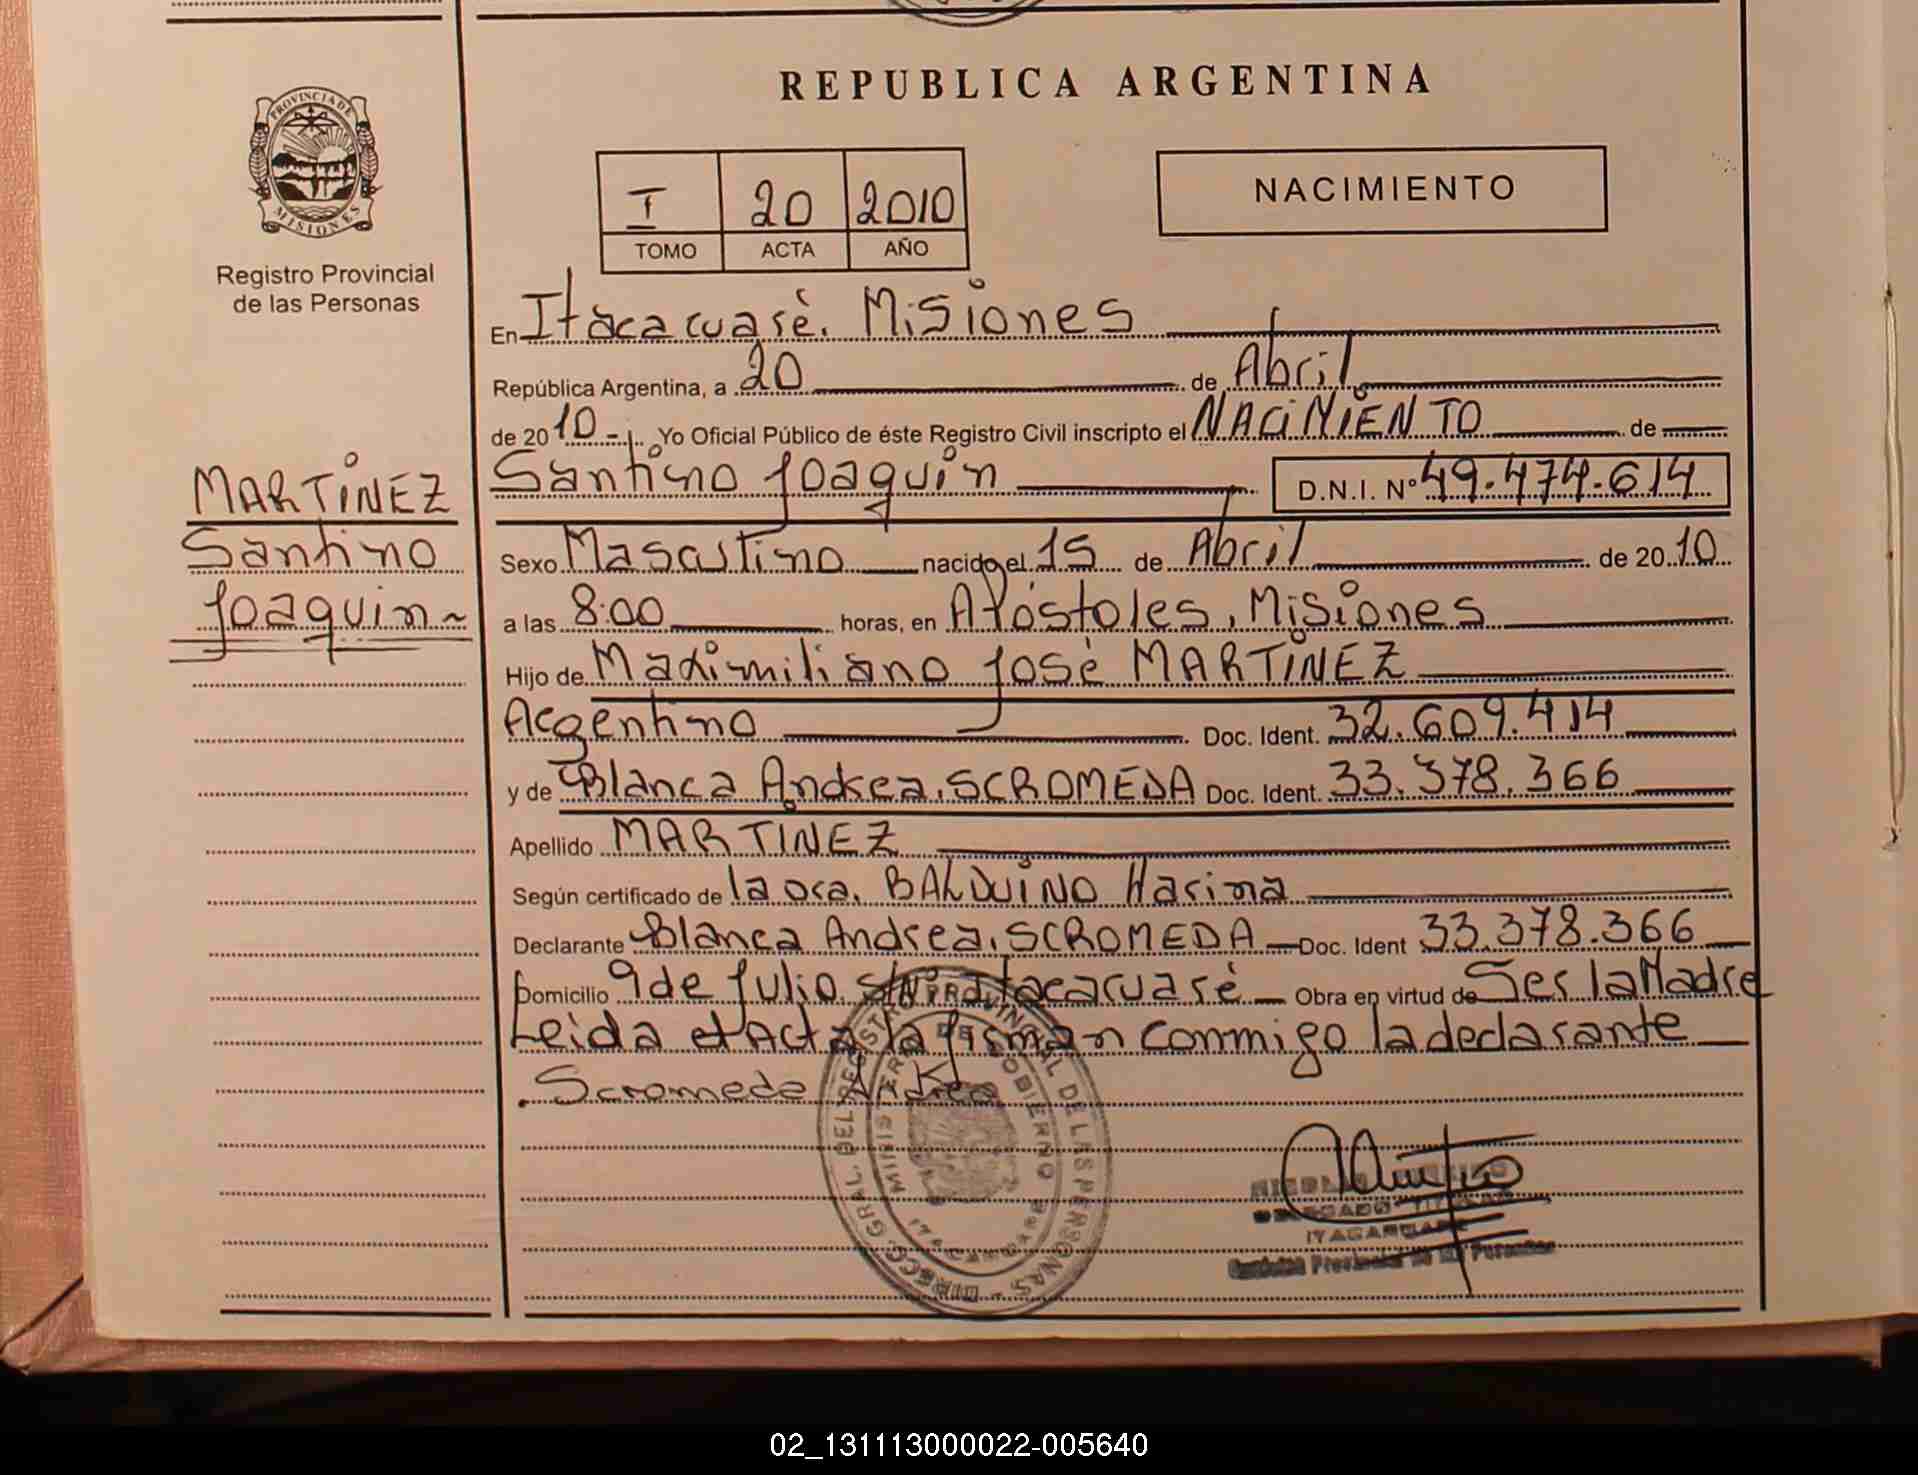 REPUBLICA ARGENTINA
PROVINCIA DE
MISIONES
Registro Provincial
de las Personas
I 20 2010
TOMO ACTA AÑO
NACIMIENTO
En Itacaruaré. Misiones
República Argentina, a 20 de Abril
de 2010 - Yo Oficial Público de éste Registro Civil inscripto el NACIMIENTO de
MARTINEZ
Santino Joaquin D.N.I. Nº 49.474.614
Santino
Sexo Masculino nacido el 15 de Abril de 2010
Joaquin ~
a las 8:00 horas, en Apóstoles, Misiones
Hijo de Maximiliano José MARTINEZ
Argentino Doc. Ident. 32.609.414
y de Blanca Andrea. SCROMEDA Doc. Ident. 33.378.366
Apellido MARTINEZ
Según certificado de la Dra. BALDUINO Marina
Declarante Blanca Andrea. SCROMEDA Doc. Ident 33.378.366
Domicilio 9 de Julio S/Nº Itacaruaré Obra en virtud de Ser la Madre
Leida el Acta la firman conmigo la declarante
Scromeda Andrea
DIRECC. GRAL. DEL REGISTRO PROVINCIAL DE LAS PERSONAS -
MINISTERIO DE GOBIERNO
ITACARUARE
DELEGADO TITULAR
ITACARUARE
Provincial de las Personas
02_131113000022-005640